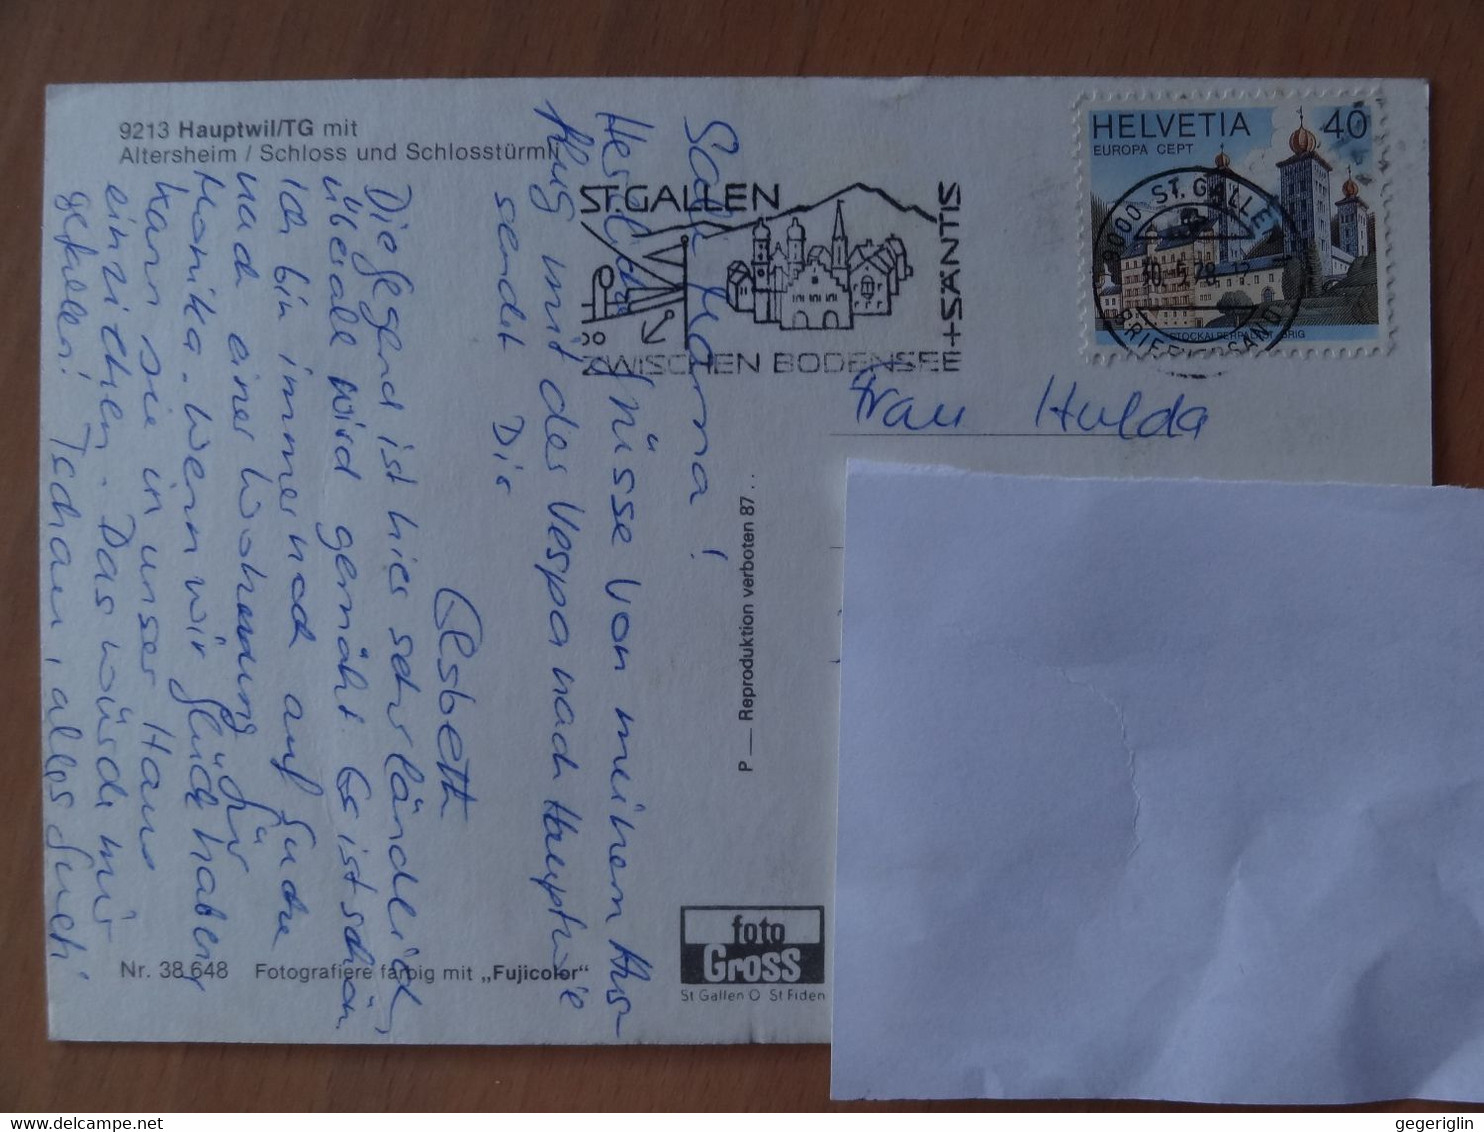 9213 Hauptwil/TG mit
Altersheim / Schloss und Schlosstürmli
ST.GALLEN
ZWISCHEN BODENSEE
+SÄNTIS
HELVETIA 40
EUROPA CEPT
STOCKALPERPALAST BRIG
9000 ST. GALLEN
30.5.78
BRIEFVERSAND
Frau Hulda
Salü Mama!
Herzliche Grüsse von meinem Aus-
flug mit der Vespa nach Hauptwil
sendit Dir
Elsbeth
Die Gegend ist hier sehr ländlich,
überall wird gemäht. Es ist schön
Ich bin immer noch auf Suche
nach einer Wohnung für
Monika. Wenn wir Glück haben
kann sie in unser Haus
einziehen. Das würde mir
gefallen! Tschau, alles Gueti
P — Reproduktion verboten 87..
foto
Gross
St Gallen O St Fiden
Nr. 38 648 Fotografiere farbig mit „Fujicolor"
gegeriglin